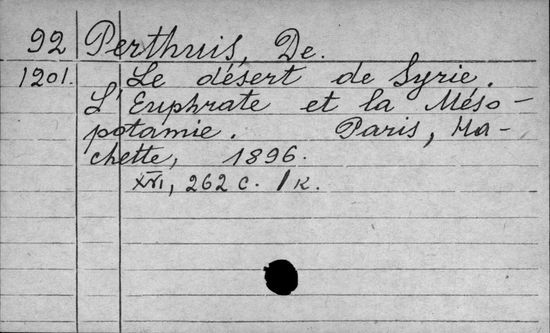 92 Perthuis, De.
1201. Le désert de Syrie.
L'Euphrate et la Méso-
potamie. Paris, Ha-
chette, 1896.
XVI, 262 c. 1 K.